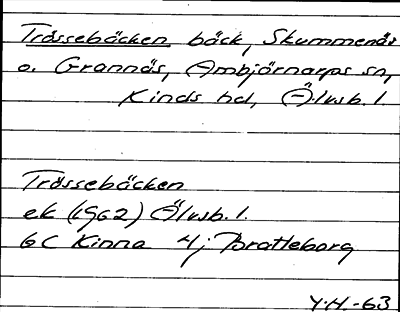 Trössebäcken, bäck, Skummenäs
o. Grannäs, Ambjörnarps sn,
Kinds hd, Älvsb. l
Trössebäcken
ek (1962) Älvsb. l.
6C Kinna 4j Bratteborg
Y.H.-63